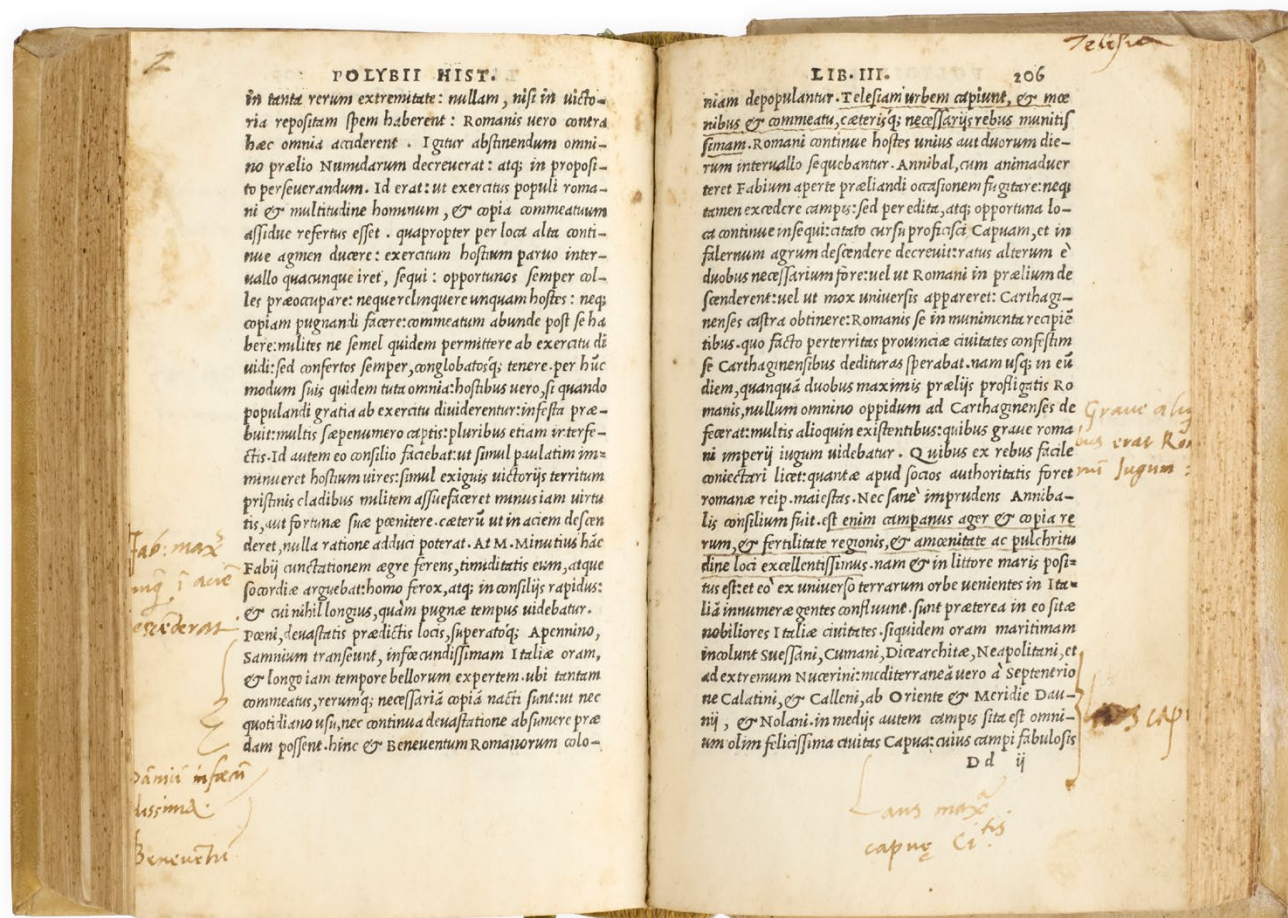 POLYBII HIST.
in tanta rerum extremitate: nullam, nisi in uicto-
ria repositam spem haberent: Romanis uero contra
hæc omnia acciderent. Igitur abstinendum omni-
no prælio Numidarum decreuerat: atq; in proposi-
to perseuerandum. Id erat: ut exercitus populi roma-
ni & multitudine hominum, & copia commeatuum
assidue refertus esset. quapropter per loca alta conti-
nue agmen ducere: exercitum hostium paruo inter-
uallo quacunque iret, sequi: opportunos semper col-
les præoccupare: neque relinquere unquam hostes: neq;
copiam pugnandi facere: commeatum abunde post se ha
bere: milites ne semel quidem permittere ab exercitu di
uidi: sed confertos semper, conglobatosq; tenere. per hūc
modum suis quidem tuta omnia: hostibus uero, si quando
populandi gratia ab exercitu diuiderentur: infesta præ-
buit: multis sæpenumero captis: pluribus etiam interfe-
ctis. Id autem eo consilio faciebat: ut simul paulatim im-
minueret hostium uires: simul exiguis uictorijs territum
pristinis cladibus militem assuefaceret minus iam uirtu
tis, aut fortunæ suæ pœnitere. cæterū ut in aciem descen
deret, nulla ratione adduci poterat. At M. Minutius hāc
Fabij cunctationem ægre ferens, timiditatis eum, atque
socordiæ arguebat: homo ferox, atq; in consilijs rapidus:
& cui nihil longius, quàm pugnæ tempus uidebatur.
Pœni, deuastatis prædictis locis, superatoq; Apennino,
Samnium transeunt, infœcundissimam Italiæ oram,
& longo iam tempore bellorum expertem. ubi tantam
commeatus, rerumq; necessariā copiā nacti sunt: ut nec
quotidiano usu, nec continua deuastatione absumere præ
dam possent. hinc & Beneuentum Romanorum colo-
Fab: max
Beneuētū
Telesia
LIB. III. 206
niam depopulantur. Telesiam urbem capiunt, & mœ
nibus & commeatu, cæterisq; necessarijs rebus munitis
simam. Romani continue hostes unius aut duorum die-
rum interuallo sequebantur. Annibal, cum animaduer
teret Fabium aperte præliandi occasionem fugitare: neq;
tamen excedere campis: sed per edita, atq; opportuna lo-
ca continue insequi: citato cursu proficisci Capuam, et in
falernum agrum descendere decreuit: ratus alterum è
duobus necessarium fore: uel ut Romani in prælium de
scenderent: uel ut mox uniuersis appareret: Carthagi-
nenses castra obtinere: Romanis se in munimenta recipiē
tibus. quo facto perterritas prouinciæ ciuitates confestim
se Carthaginensibus dedituras sperabat. nam usq; in eū
diem, quanquā duobus maximis prælijs profligatis Ro
manis, nullum omnino oppidum ad Carthaginenses de
fecerat: multis alioquin existentibus: quibus graue roma
ni imperij iugum uidebatur. Quibus ex rebus facile
coniectari licet: quantæ apud socios authoritatis foret
romanæ reip. maiestas. Nec sanè imprudens Anniba-
lis consilium fuit. est enim campanus ager & copia re
rum, & fertilitate regionis, & amœnitate ac pulchritu
dine loci excellentissimus. nam & in littore maris posi-
tus est: et eò ex uniuerso terrarum orbe uenientes in Ita-
liā innumeræ gentes confluunt. sunt præterea in eo sitæ
nobiliores Italiæ ciuitates. siquidem oram maritimam
incolunt Suessani, Cumani, Dicearchitæ, Neapolitani, et
ad extremum Nucerini: mediterraneā uero à Septentrio
ne Calatini, & Calleni, ab Oriente & Meridie Dau-
nij, & Nolani. in medijs autem campis sita est omni-
um olim felicissima ciuitas Capua: cuius campi fabulosis
Dd ij
Graue aliq
bus erat Ro
Iugum:
Laus max
capuę Ci.tis